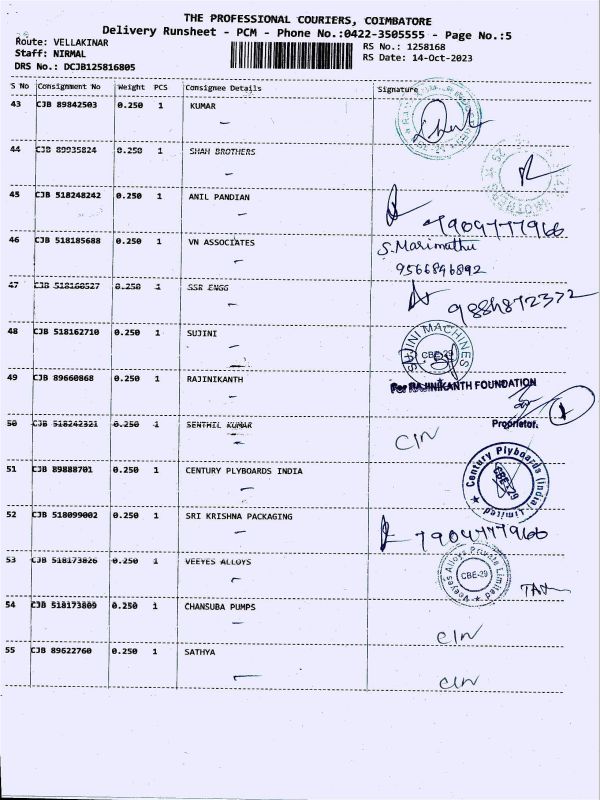 THE PROFESSIONAL COURIERS, COIMBATORE
Delivery Runsheet - PCM - Phone No.:0422-3505555 - Page No.:5
Route: VELLAKINAR
Staff: NIRMAL
DRS No.: DCJB125816805
RS No.: 1258168
RS Date: 14-Oct-2023
S No Consignment No Weight PCS Consignee Details Signature
43 CJB 89842503 0.250 1 KUMAR
44 CJB 89935824 0.250 1 SHAH BROTHERS
45 CJB 518248242 0.250 1 ANIL PANDIAN
7909777966
46 CJB 518185688 0.250 1 VN ASSOCIATES S. Marimuthu
9566896892
47 CJB 518160527 0.250 1 SSR ENGG
9884872372
48 CJB 518162710 0.250 1 SUJINI
SUJINI MACHINES
CBE-29
49 CJB 89660868 0.250 1 RAJINIKANTH
For RAJINIKANTH FOUNDATION
1
Proprietor.
50 CJB 518242321 0.250 1 SENTHIL KUMAR CIN
51 CJB 89888701 0.250 1 CENTURY PLYBOARDS INDIA
Century Plyboards (India) Limited
CBE-29
52 CJB 518099002 0.250 1 SRI KRISHNA PACKAGING
7904777966
53 CJB 518173826 0.250 1 VEEYES ALLOYS
Veeyes Alloys Private Limited
CBE-29
54 CJB 518173809 0.250 1 CHANSUBA PUMPS
CIN
55 CJB 89622760 0.250 1 SATHYA
CIN